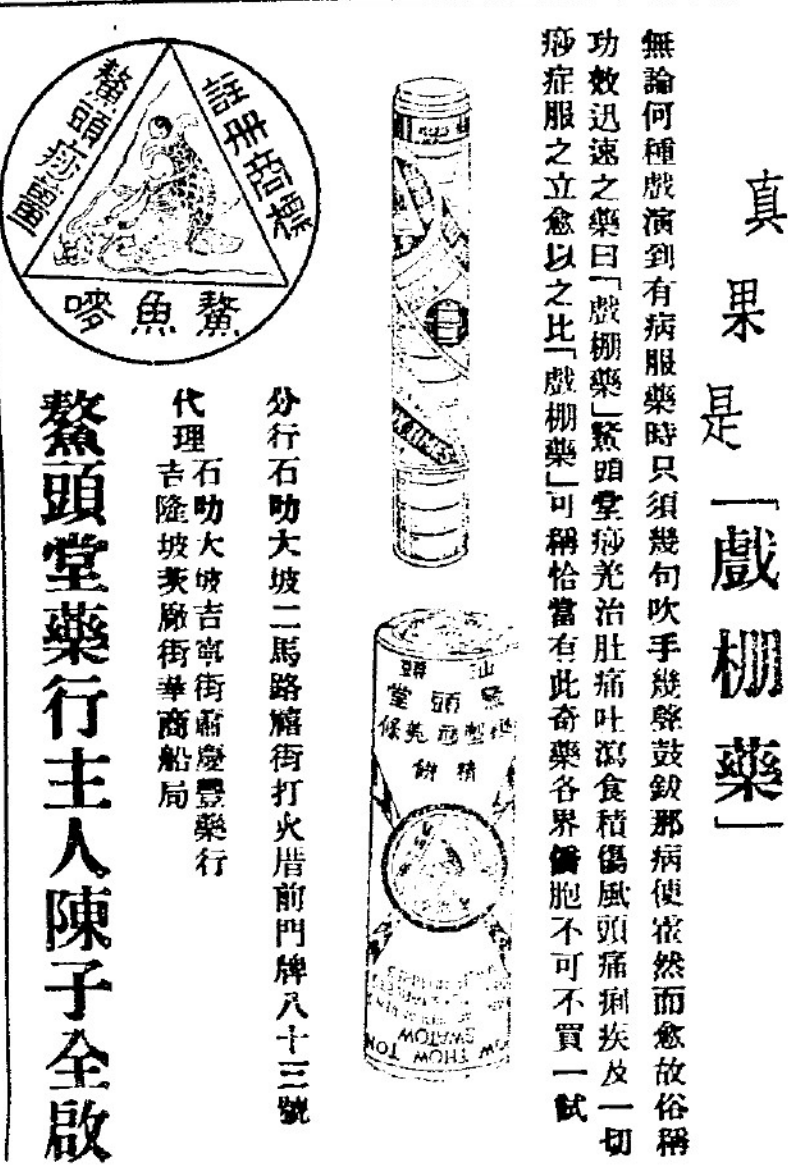 真果是「戲棚藥」
無論何種戲演到有病服藥時只須幾句吹手幾聲鼓鈸那病便霍然而愈故俗稱
功效迅速之藥曰「戲棚藥」鰲頭堂痧羌治肚痛吐瀉食積傷風頭痛痢疾及一切
痧症服之立愈以之比「戲棚藥」可稱恰當有此奇藥各界僑胞不可不買一試
註冊商標
鰲頭痧薑
鰲魚嘜
汕頭
鰲頭堂
精餅
SWATOW
分行石叻大坡二馬路禧街打火厝前門牌八十三號
代理
石叻大坡吉寧街肅慶豐藥行
吉隆坡茨廠街華商船局
鰲頭堂藥行主人陳子全啟